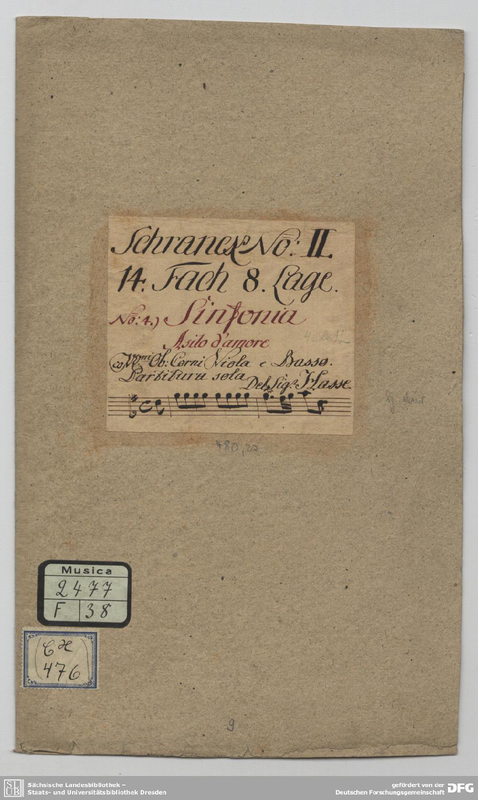 Schranck No: II.
14. Fach 8. Lage.
No: 4.) Sinfonia
Asilo d'amore
co VVni Ob: Corni Viola e Basso.
Partitura sola Del Sigr. Hasse.
Musica
2477
F 38
476
9
Sächsische Landesbibliothek –
Staats- und Universitätsbibliothek Dresden
gefördert von der
Deutschen Forschungsgemeinschaft
DFG